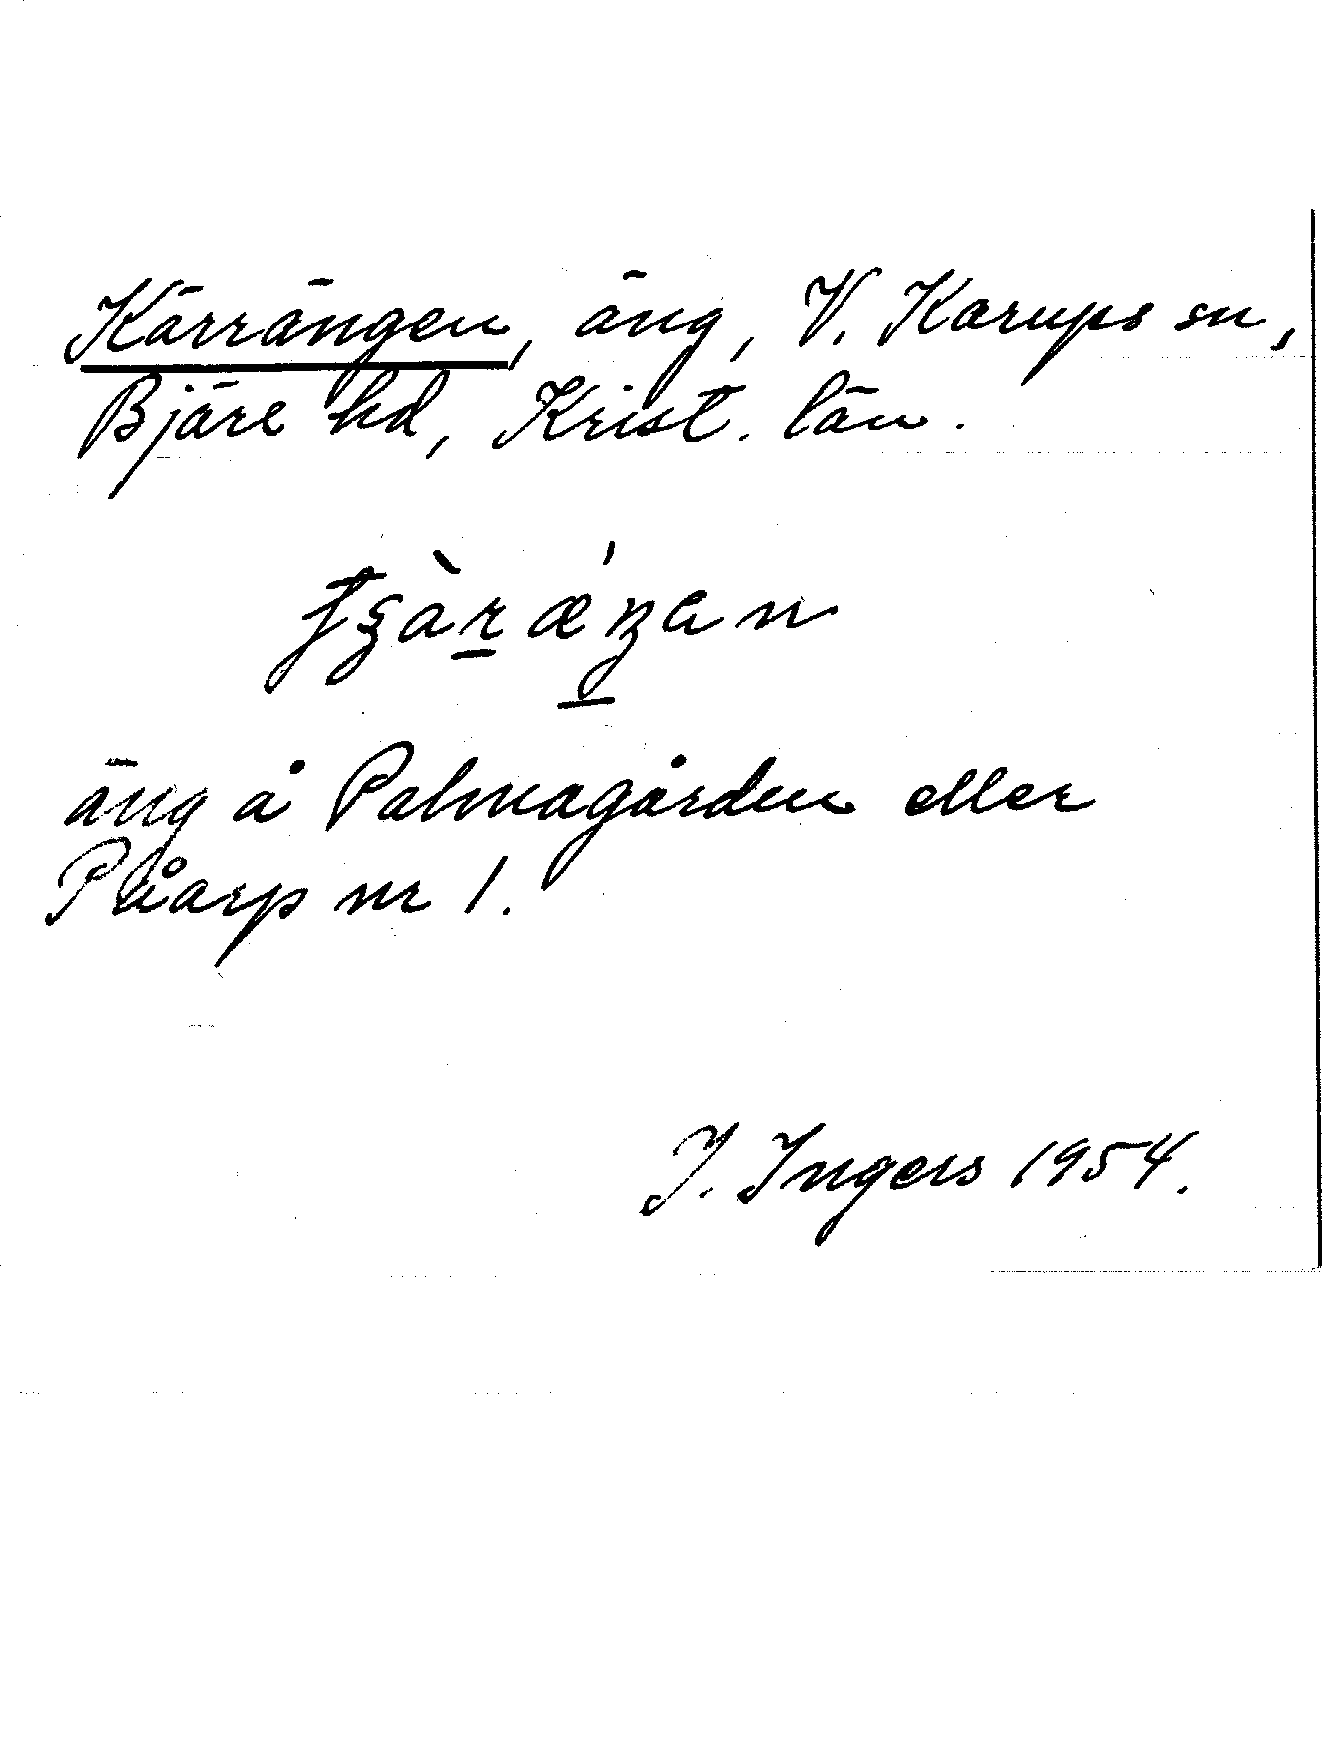 Kärrängen, äng, V. Karups sn,
Bjäre hd, Krist. län.
äng å Palmagården eller
Påarp nr 1.
I. Ingers 1954.